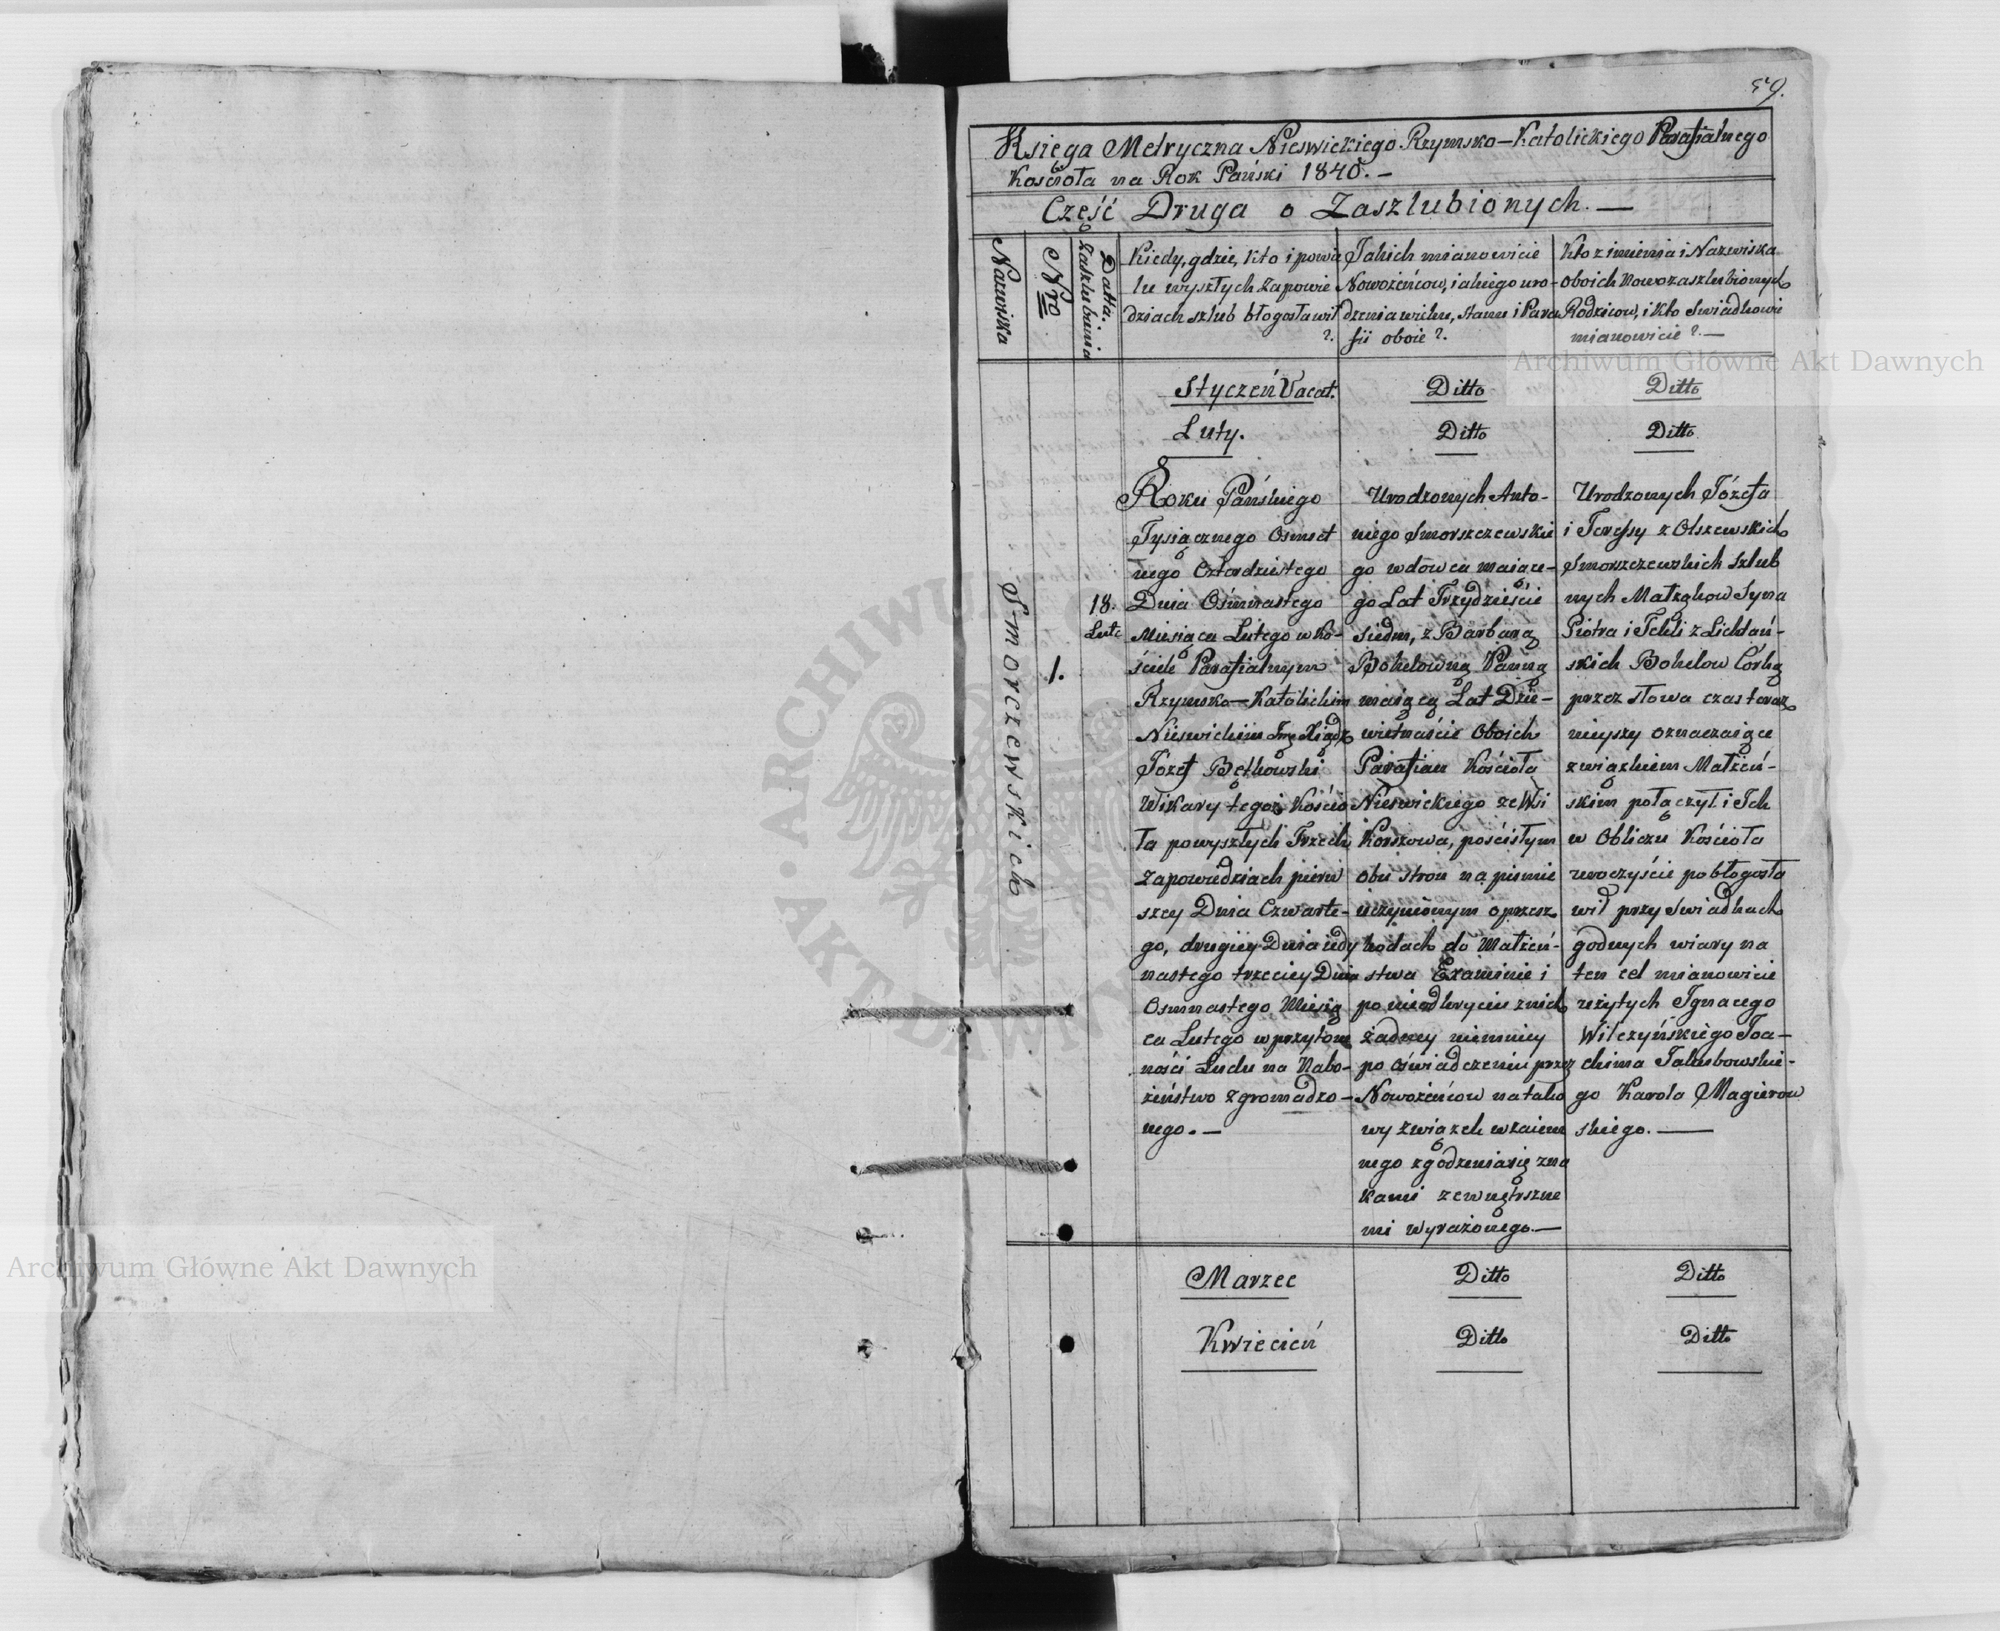 59.
Księga Metryczna Nieswickiego Rzymsko-Katolickiego Parafialnego
Kościoła na Rok Pański 1840.-
Część Druga o Zaszlubionych.-
Nazwiska
Nro
Datta Zaszlubienia
Kiedy, gdzie, Kto i powie
lu wyszłych Zapowie
dziach szlub błogosławił
?.
Jakich mianowicie
Nowożeńcow, iakiego uro-
dzenia wieku, stanu i Para
fii oboie?.
Kto z imienia i Nazwiska
oboich Nowozaszlubionych
Rodzicow, i Kto Swiadkowie
mianowicie?.-
Styczeń Vacat.
Ditto
Ditto
Luty.
Ditto
Ditto
Smorczewskich
1.
18.
Lute
Roku Pańskiego
Tysiącznego Osmset
nego Czterdziestego
Dnia Ośmnastego
Miesiąca Lutego w Ko-
ściele Parafialnym
Rzymsko-Katolickim
Nieswickim Xiądz
Józef Bętkowski
Wikary tegoż Kościo
ła powyszłych Trzech
Zapowiedziach pierw
szey Dnia Czwarte-
go, drugiey Dnia iedy
nastego trzeciey Dnia
Osmnastego Miesią
ca Lutego w przytom
ności Ludu na Nabo-
żeństwo zgromadzo-
nego.-
Urodzonych Anto-
niego Smorszczewskie
go wdowca maiące-
go Lat Trzydzieście
siedm, z Barbarą
Bokełowną Panną
maiącą Lat Dzie-
wietnaście Oboich
Parafian Kościoła
Nieswickiego ze Wsi
Korszowa, pościsłym
obu stron na piśmie
uczynionym o przesz
kodach do Małżeń-
stwa Examinie i
ponieodkryciu z nich
żadney niemniey
po oświadczeniu przez
Nowożeńcow na tako
wy związek wzaiem
nego zgodzenia się zna
kami zewnętrzne
mi wyrażonego.-
Urodzonych Józefa
i Teressy z Olszewskich
Smorszczewskich szlub
nych Małżąkow Syna
Piotra i Tekli z Lichtań-
skich Bokelow Corką
przez słowa czas teraz
nieyszy oznaczaiące
związkiem Małżeń-
skim połączył i Ich
w Obliczu Kościoła
uroczyście pobłogosła
wił przy Swiadkach
godnych wiary na
ten cel mianowicie
użytych Ignacego
Wilczyńskiego Joa-
chima Jakubowskie-
go Karola Magierow
skiego.-
Marzec
Ditto
Ditto
Kwiecień
Ditto
Ditto
Archiwum Główne Akt Dawnych
Archiwum Główne Akt Dawnych
ARCHIWUM
AKT DAWNYCH